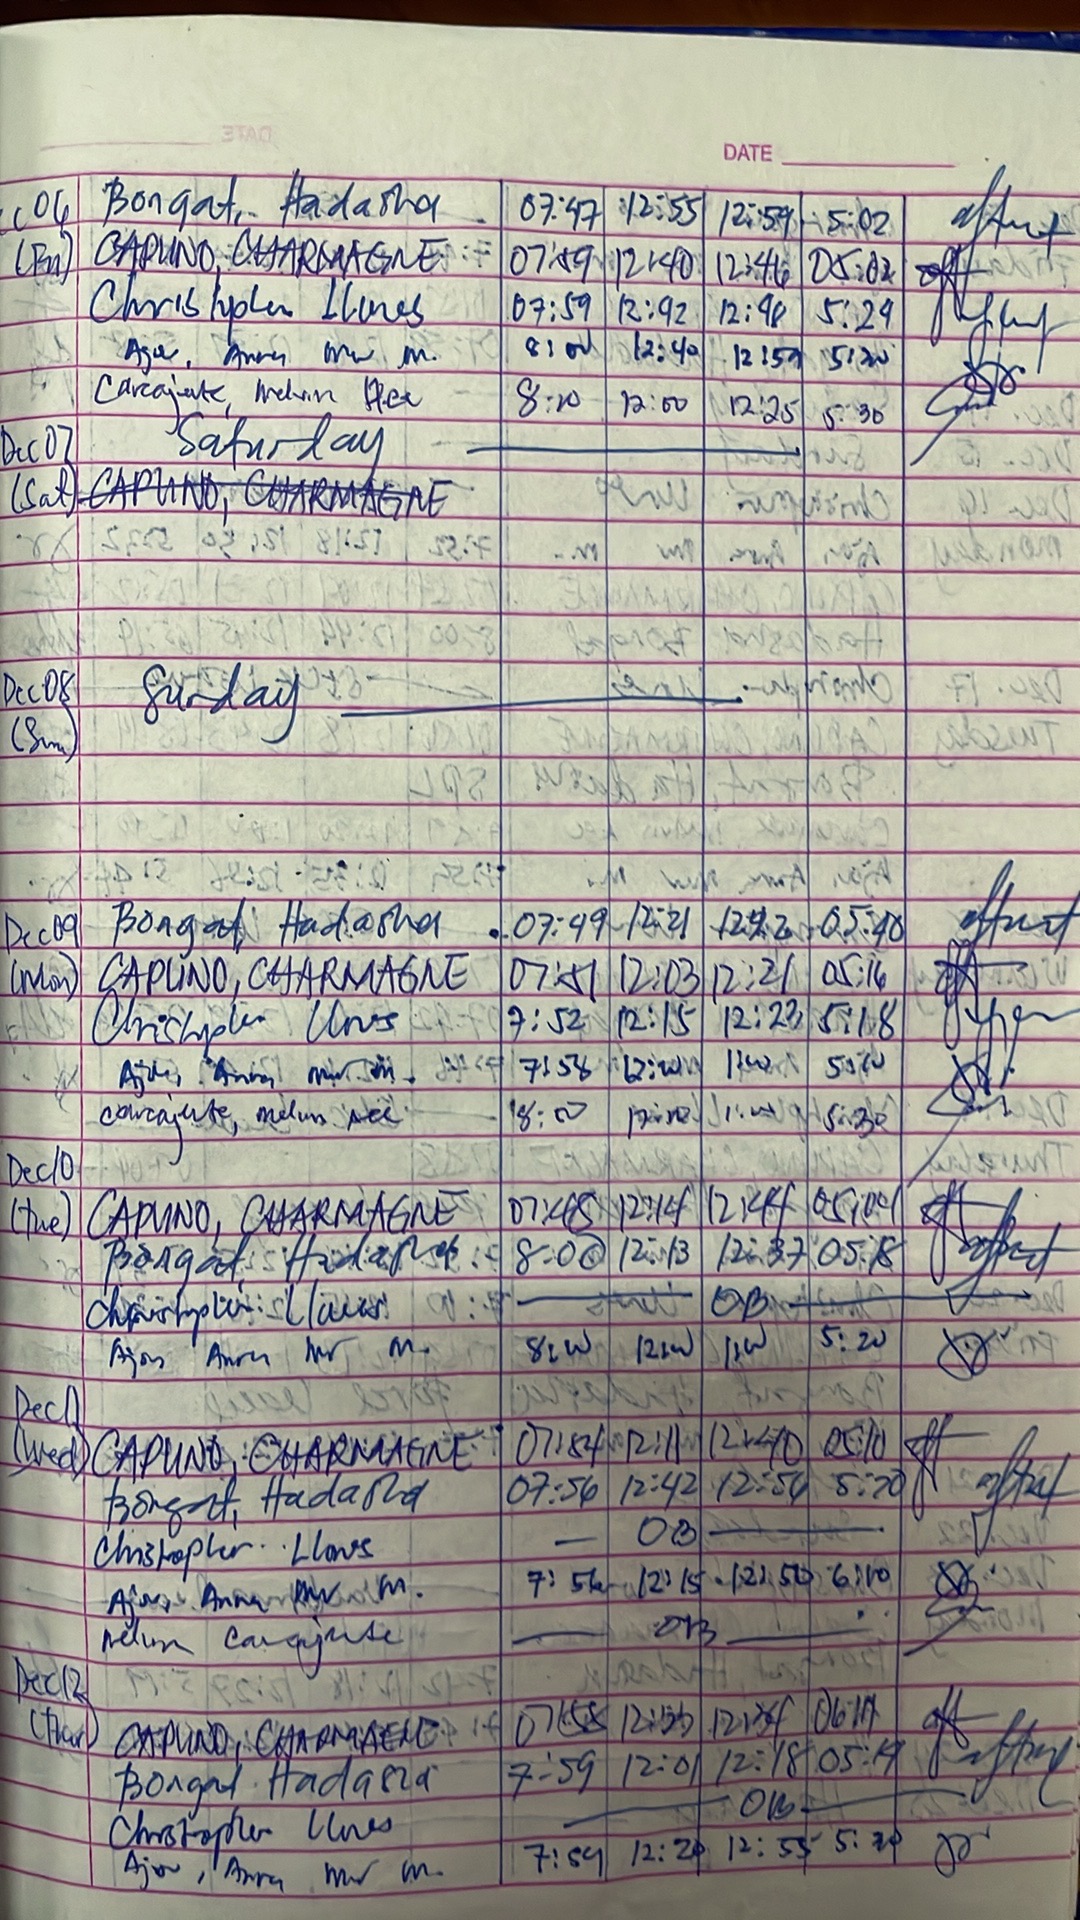 DATE
06 Bongat, Hadasha 07:47 12:55 12:59 5:02
(Fri) CAPUNO, CHARMAGNE 07:49 12:40 12:46 05:02
Christopher Llones 07:59 12:42 12:48 5:29
Anna M. 8:00 12:40 12:59 5:20
Carcajente, Melvin 8:20 12:00 12:25 5:30
Dec 07 Saturday
(Sat) CAPUNO, CHARMAGNE
Dec 08 Sunday
(Sun)
Dec 09 Bongat, Hadasha 07:49 12:21 12:42 05:40
(Mon) CAPUNO, CHARMAGNE 07:51 12:03 12:21 05:16
Christopher Llones 7:52 12:15 12:23 5:18
Anna M. 7:58 12:00 1:00
Carcajente, Melvin 8:00 12:00 5:30
Dec 10
(Tue) CAPUNO, CHARMAGNE 07:48 12:14 12:44 05:04
Bongat, Hadasha 8:00 12:13 12:37 05:18
Christopher Llones OB
Anna M. 8:00 12:00 1:00 5:20
Dec 11
(Wed) CAPUNO, CHARMAGNE 07:54 12:11 12:40 05:10
Bongat, Hadasha 07:56 12:42 12:56 5:20
Christopher Llones OB
Anna M. 7:56 12:15 12:50 6:10
Melvin Carcajente OB
Dec 12
(Thur) CAPUNO, CHARMAGNE 07:58 12:33 12:34
Bongat Hadasha 7:59 12:01 12:18 05:19
Christopher Llones OB
Anna M. 7:59 12:20 12:55 5:20